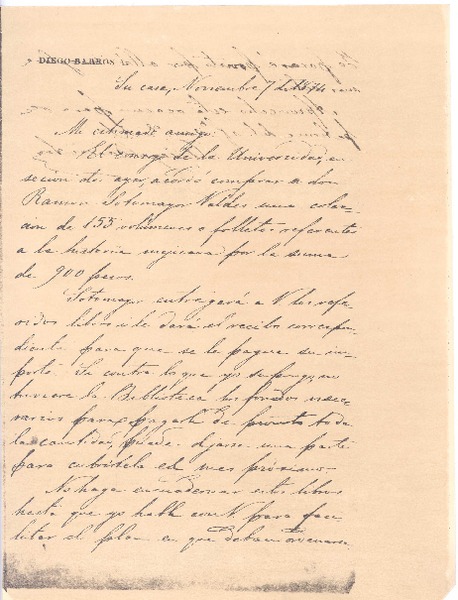 DIEGO BARROS
Su casa, Noviembre 7 de 1874
Mi estimado amigo:
El consejo de la Universidad, en
sesión de ayer, acordó comprar a don
Ramon Sotomayor Valdes una colec-
cion de 155 volúmenes o folletos referentes
a la historia mejicana por la suma
de 900 pesos.
Sotomayor entregará a V. los refe-
ridos libros i le dará el recibo correspon-
diente para que se le pague su im-
porte. Si contra lo que yo supongo, no
tuviere la Biblioteca los fondos nece-
sarios para pagarle de pronto toda
la cantidad, puede dejarse una parte
para cubrirsela el mes próximo.
No haga encuadernar estos libros
hasta que yo hable con V. para faci-
litar el plan en que deban